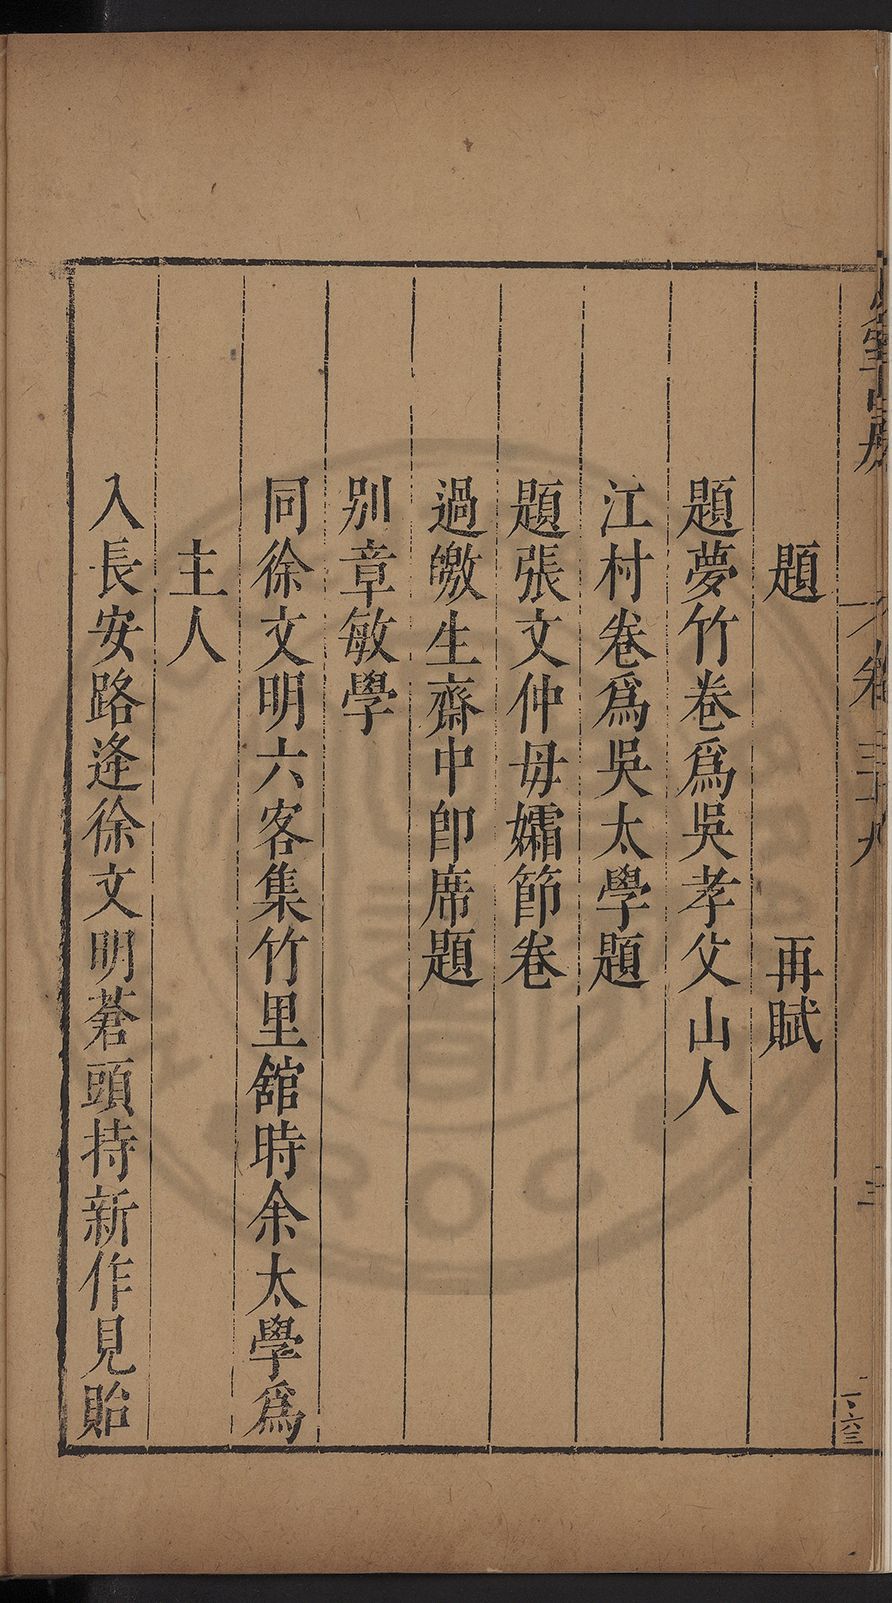 題　再賦
題夢竹卷爲吳孝父山人
江村卷爲吳太學題
題張文仲母孀節卷
過皦生齋中卽席題
別章敏學
同徐文明六客集竹里舘時余太學爲
主人
入長安路逢徐文明蒼頭持新作見貽
卷三十九
三
二、六三